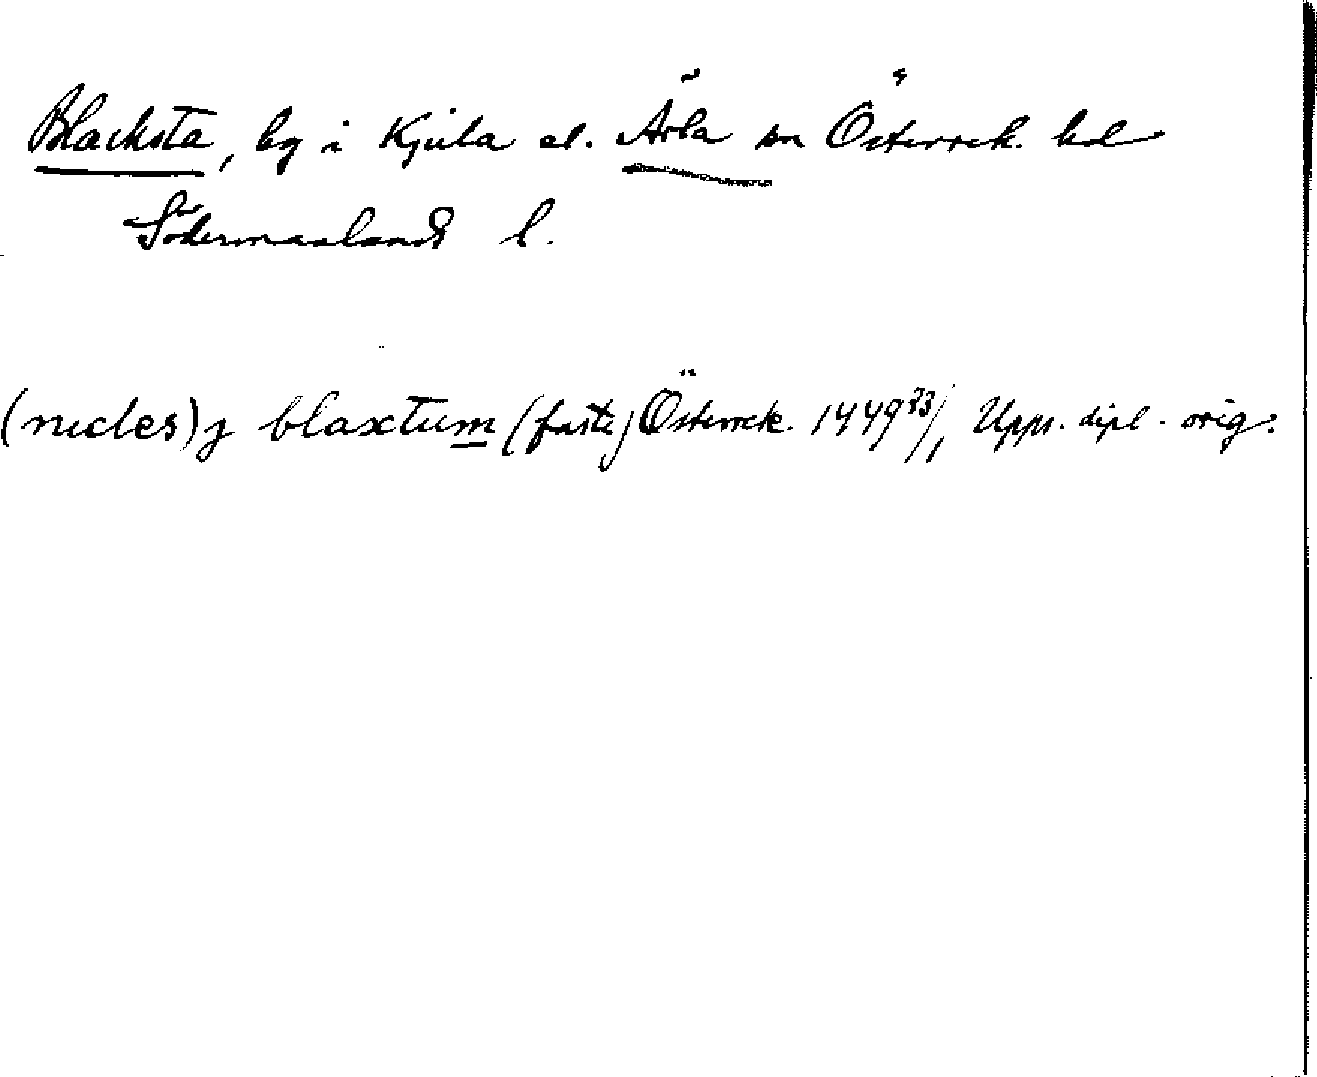 Blacksta, by i Kjula el. Ärla sn Österrek. hd
Södermanlands l.
(nicles) j blaxtum (faste) Österrek. 1449 23/1 Upps. dipl. orig.